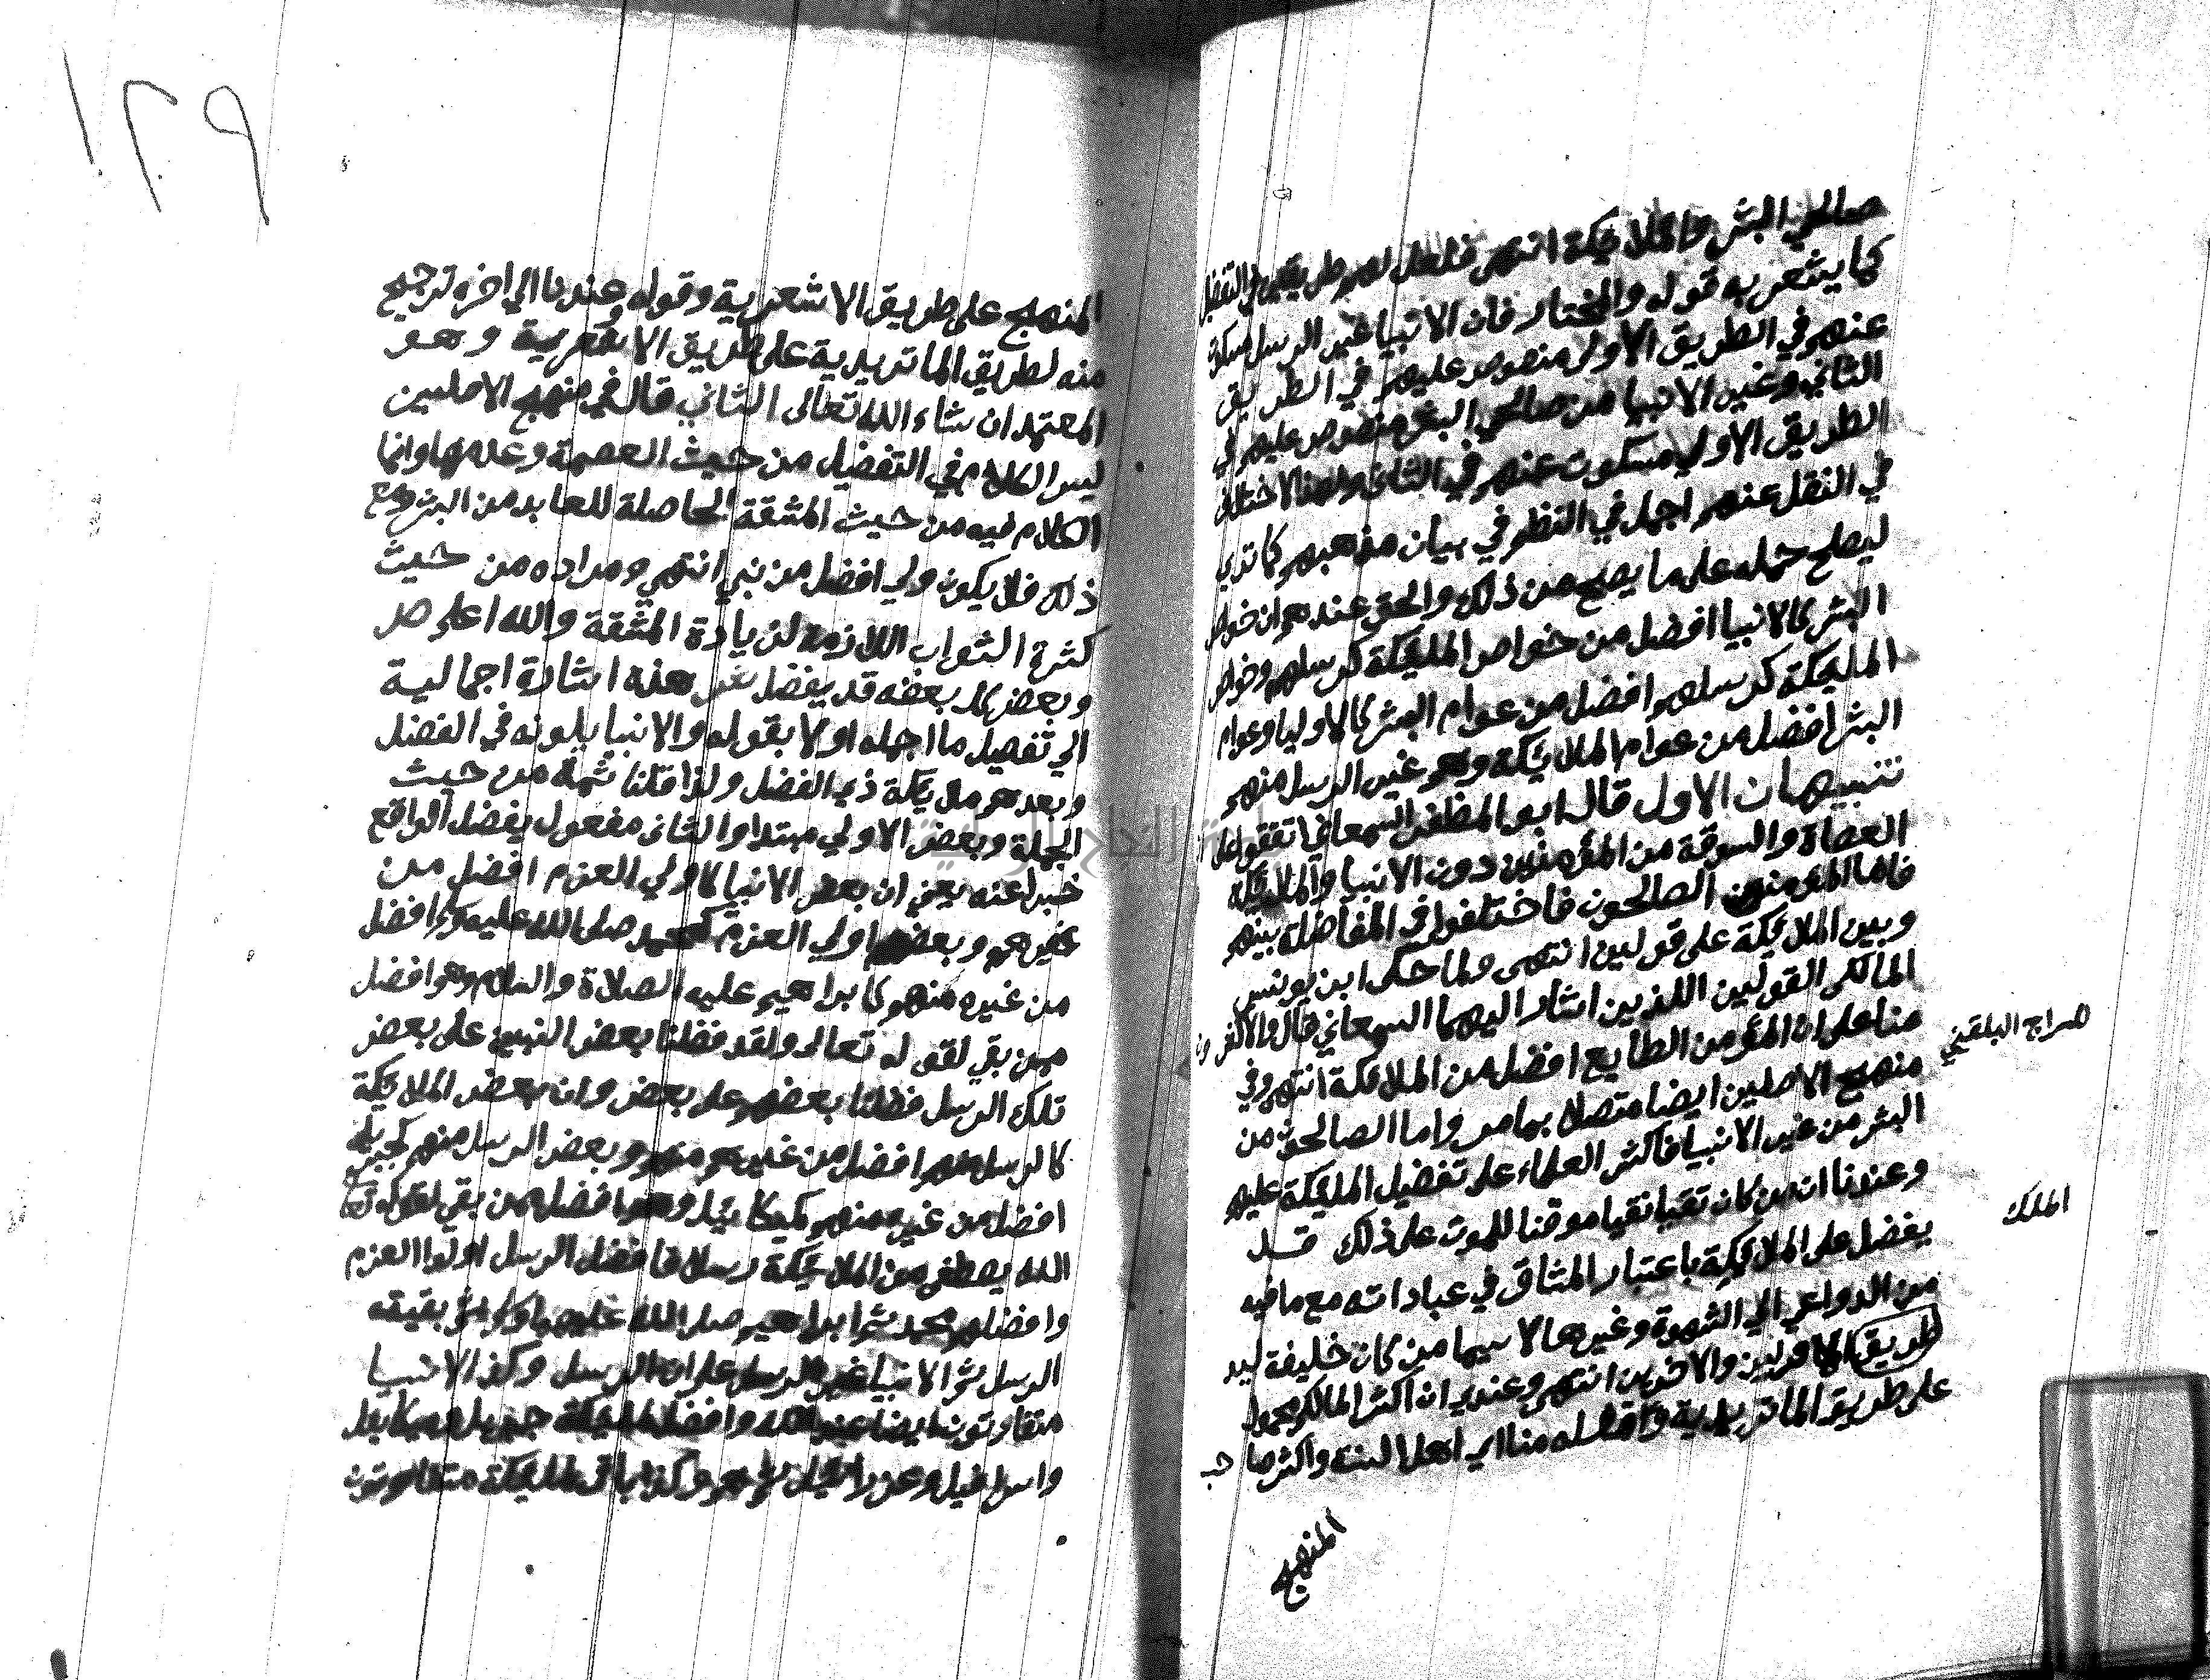 صالحي البشر والملايكة انتهى فلعل لهم طريقين في التفضيل
كما يشعر به قوله والمختار فان الانبيا غير الرسل مسكوت
عنهم في الطريق الاولى منصوص عليهم في الطريق
الثاني وغير الانبيا من صالحي البشر منصوص عليهم في
الطريق الاولي مسكوت عنهم في الثاني ولهذا الاختلاف
في النقل عنهم اجمل في النظم في بيان مذهبهم كما تري
ليصلح حمله على ما يصح من ذلك والحق عندهم ان خواص
البشر كالانبيا افضل من خواص المليكة كرسلهم وخواص
المليكة كرسلهم افضل من عوام البشر كالاوليا وعوام
البشر افضل من عوام الملايكة وهم غير الرسل منهم
تنبيهان الاول قال ابو المظفر السمعاني اتفقوا على ان
العصاة والسوقة من المؤمنين دون الانبيا والملايكة
فاما المؤمنون الصالحون فاختلفوا في المفاضلة بينهم
وبين الملايكة على قولين انتهى ولما حكى ابن يونس
المالكي القولين اللذين اشار اليهما السمعاني قال والاكثرون
منا على ان المؤمن الطايع افضل من الملايكة انتهى وفي
سراج البلقيني
منهج الاصلين ايضا متصلا بما مر واما الصالحون من
البشر من غير الانبيا فاكثر العلماء على تفضيل المليكة عليهم
وعندنا ان من كان تقيا نقيا موقنا للموت على ذلك قد
الملك
يفضل على الملايكة باعتبار المشاق في عباداته مع ما فيه
من الدواعي الي الشهوة وغيرها لا سيما من كان خليفة
طريق الاولين والاخرين انتهى وعندي ان اكثر المالكي محمول
على طريق الماتريدية وافضله منا اي اهل السنة واكثر صاحب
المنهج
١٢٩
المنهج على طريق الاشعرية وقوله وعندنا الي اخره ترجيح
منه لطريق الماتريدية على طريق الاشعرية وهو
المعتمد ان شاء الله تعالى الثاني قال في منهج الاصلين
ليس الكلام في التفضيل من حيث العصمة وعدمها وانما
الكلام فيه من حيث المشقة الحاصلة للعابد من البشر ومع
ذلك فلا يكون ولي افضل من نبي انتهي ومراده من حيث
كثرة الثواب اللازمة لزيادة المشقة والله اعلم ص
وبعض كل بعضه قد يفضل ش هذه اشارة اجمالية
الي تفصيل ما اجمله اولا بقوله والانبيا يلونه في الفضل
وبعدهم ملايكة ذي الفضل ولذا قلنا ثمة من حيث
الجملة وبعض الاولي مبتدا والثاني مفعول يفضل الواقع
خبرا عنه يعني ان بعض الانبيا كاولي العزم افضل من
غيرهم وبعض اولي العزم كمحمد صلى الله عليه وسلم افضل
من غيره منهم كابراهيم عليه الصلاة والسلام وهو افضل
ممن بقي لقوله تعالى ولقد فضلنا بعض النبيين على بعض
تلك الرسل فضلنا بعضهم على بعض وان بعض الملايكة
كالرسل منهم افضل من غيرهم منهم وبعض الرسل منهم كجبريل
افضل من غيره منهم كميكائيل وهو افضل ممن بقي لقوله تع
الله يصطفى من الملايكة رسلا فافضل الرسل اولوا العزم
وافضلهم محمد ثم ابراهيم صلى الله عليهما وسلم ثم بقية
الرسل ثم الانبيا غير الرسل على ان الرسل وكذا الانبيا
متفاوتون ايضا عند الله وافضل المليكة جبريل وميكاييل
واسرافيل وعزرائيل ثم هم وكذا باقي المليكة متفاوتون